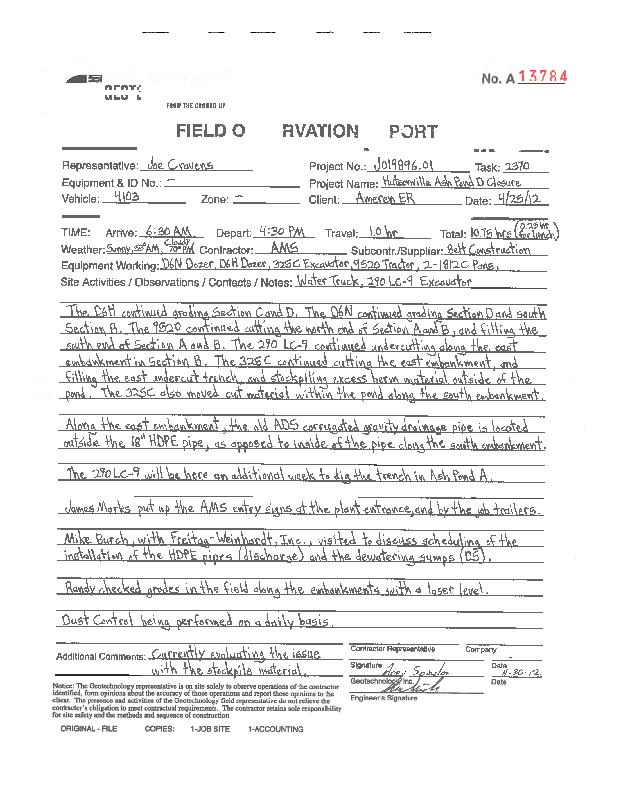 No. A 13784
GEOTE
FROM THE GROUND UP
FIELD O RVATION PORT
Representative: Joe Cravens Project No.: J019896.01 Task: 2370
Equipment & ID No.: – Project Name: Hutsonville Ash Pond D Closure
Vehicle: 4103 Zone: – Client: Ameren ER Date: 4/25/12
TIME: Arrive: 6:30 AM Depart: 4:30 PM Travel: 1.0 hr Total: 10.75 hrs (0.25 hr for lunch)
Weather: Sunny, 55° AM, Cloudy 70° PM Contractor: AMS Subcontr./Supplier: Belt Construction
Equipment Working: D6N Dozer, D6H Dozer, 325C Excavator, 9520 Tractor, 2-1812C Pans,
Site Activities / Observations / Contacts / Notes: Water Truck, 290 LC-9 Excavator
The D6H continued grading Section C and D. The D6N continued grading Section D and south
Section B. The 9520 continued cutting the north end of Section A and B, and filling the
south end of Section A and B. The 290 LC-9 continued undercutting along the east
embankment in Section B. The 325C continued cutting the east embankment, and
filling the east undercut trench, and stockpiling excess berm material outside of the
pond. The 325C also moved cut material within the pond along the south embankment.
Along the east embankment, the old ADS corrugated gravity drainage pipe is located
outside the 18" HDPE pipe, as opposed to inside of the pipe along the south embankment.
The 290 LC-9 will be here an additional week to dig the trench in Ash Pond A.
James Marks put up the AMS entry signs at the plant entrance, and by the job trailers.
Mike Burch, with Freitag-Weinhardt, Inc., visited to discuss scheduling of the
installation of the HDPE pipes (discharge) and the dewatering sumps (D3).
Randy checked grades in the field along the embankments with a laser level.
Dust Control being performed on a daily basis.
Additional Comments: Currently evaluating the issue
with the stockpile material.
Contractor Representative Company
Signature Date
4-30-12
Geotechnology Inc. Date
Engineer's Signature
Notice: The Geotechnology representative is on site solely to observe operations of the contractor
identified, form opinions about the accuracy of those operations and report those opinions to the
client. The presence and activities of the Geotechnology field representative do not relieve the
contractor's obligation to meet contractual requirements. The contractor retains sole responsibility
for site safety and the methods and sequence of construction
ORIGINAL - FILE COPIES: 1-JOB SITE 1-ACCOUNTING